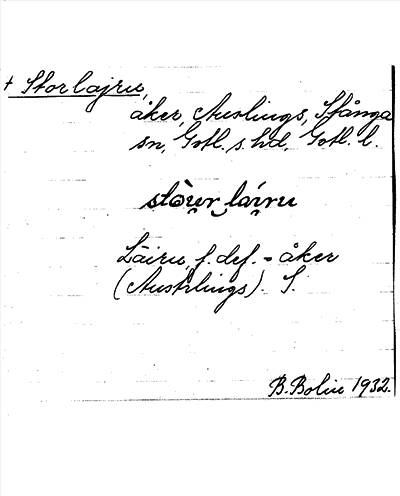 + Storlajru,
åker, Austlings, Stånga
sn, Gotl. s. hd, Gotl. l.
stòu̯r‿lái̯ru
Läiru, f. def. - åker
(Austrlings). S.
B. Bolin 1932.